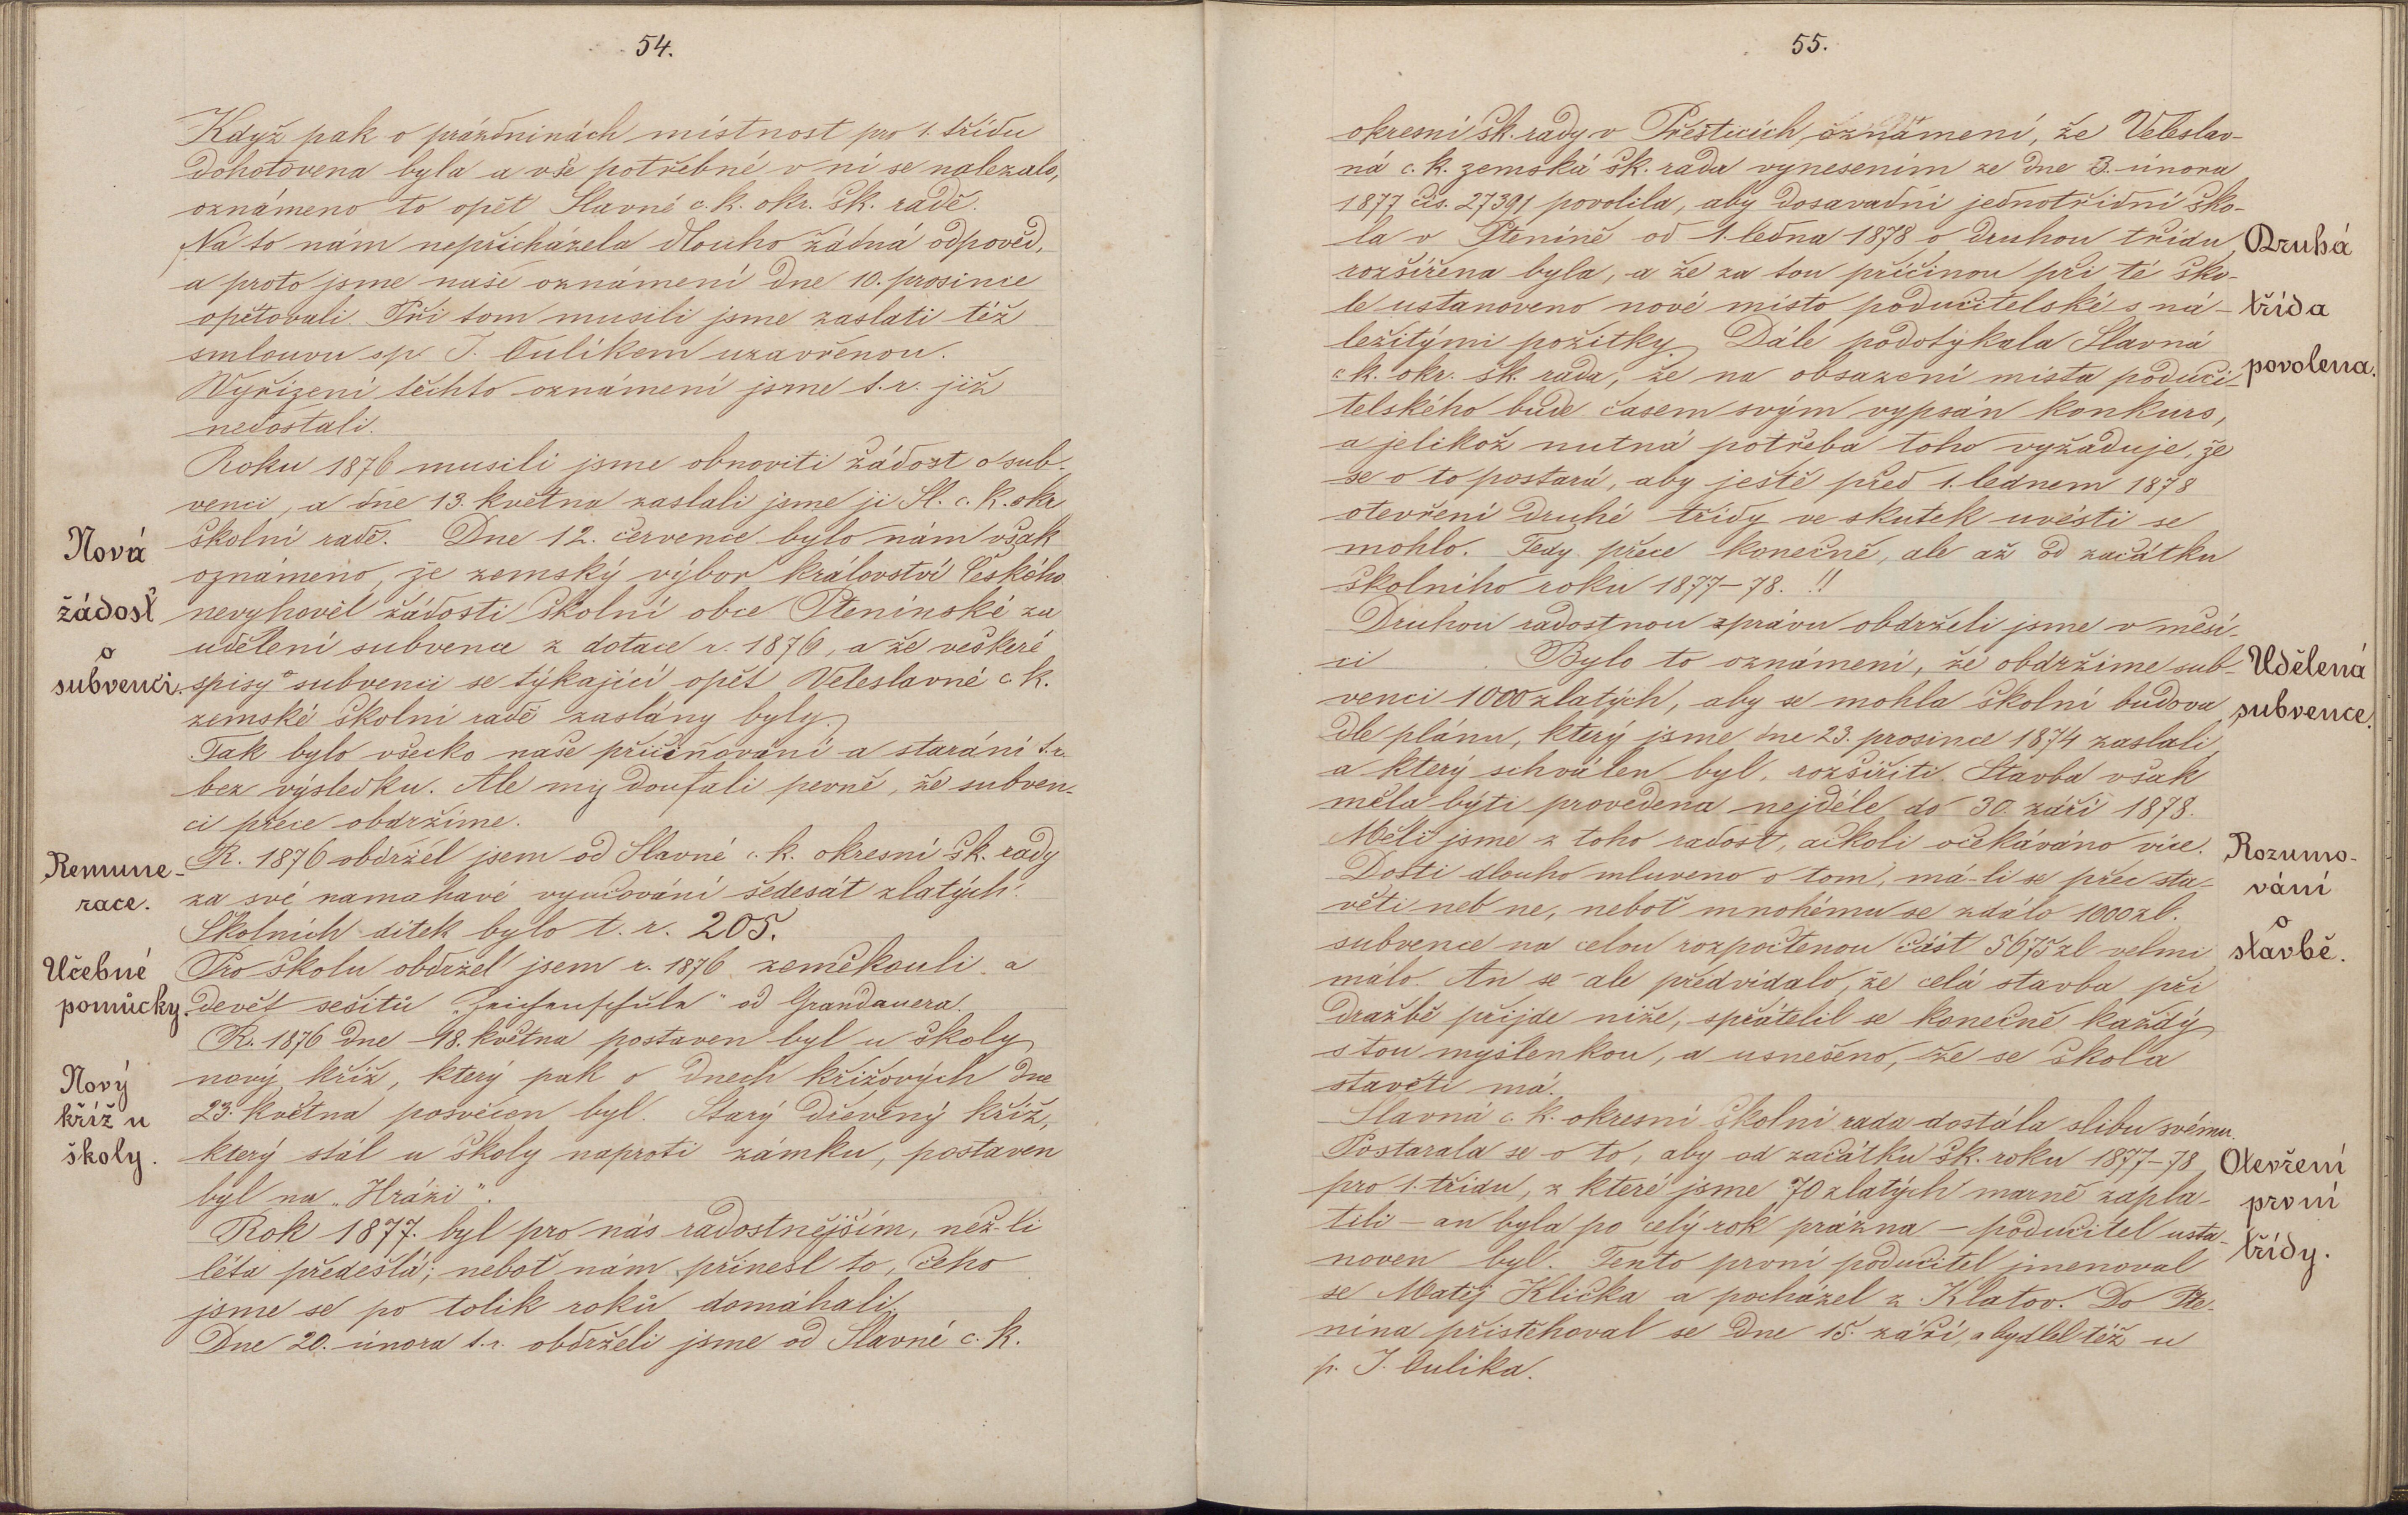 54.
Když pak o prázdninách místnost pro 1. třídu
dohotovena byla a vše potřebné v ní se nalezalo,
oznámeno to opět Slavné c. k. okr. šk. radě.
Na to nám nepřicházela dlouho žádná odpověď,
a proto jsme naše oznámení dne 10. prosince
opětovali. Při tom musili jsme zaslati též
smlouvu s p. J. Oulíkem uzavřenou.
Vyřízení těchto oznámení jsme t. r. již
nedostali.
Roku 1876 musili jsme obnoviti žádost o sub-
venci, a dne 13. května zaslali jsme ji Sl. c. k. okr
školní radě. Dne 12. července bylo nám však
oznámeno, že zemský výbor království Českého
nevyhověl žádosti školní obce Ptenínské za
udělení subvence z dotace r. 1876, a že veškeré
spisy o subvenci se týkající opět Veleslavné c. k.
zemské školní radě zaslány byly.
Tak bylo všecko naše přičiňování a starání t. r.
bez výsledku. Ale my doufali pevně, že subven-
ci přece obdržíme.
R. 1876 obdržel jsem od Slavné c. k. okresní šk. rady
za své namahavé vyučování šedesát zlatých.
Školních dítek bylo t. r. 205.
Pro školu obdržel jsem r. 1876 zeměkouli a
devět sešitů „Zeichenschule" od Grandauera.
R. 1876 dne 18. května postaven byl u školy
nový kříž, který pak o dnech křížových dne
23. května posvěcen byl. Starý dřevěný kříž,
který stál u školy naproti zámku, postaven
byl na „Hrázi".
Rok 1877. byl pro nás radostnějším, než-li
léta předešlá; neboť nám přinesl to, čeho
jsme se po tolik roků domáhali.
Dne 20. února t. r. obdrželi jsme od Slavné c. k.
Nová
žádost
o
subvenci.
Remune-
race.
Učebné
pomůcky.
Nový
kříž u
školy.
55.
okresní šk. rady v Přešticích, oznámení, že Veleslav-
ná c. k. zemská šk. rada vynesením ze dne 3. února
1877 čís. 27391 povolila, aby dosavadní jednotřídní ško-
la v Pteníně od 1. ledna 1878 o druhou třídu
rozšířena byla, a že za tou příčinou při té ško-
le ustanoveno nové místo podučitelské s ná-
ležitými požitky. Dále podotýkala Slavná
c. k. okr. šk. rada, že na obsazení místa poduči-
telského bude časem svým vypsán konkurs,
a jelikož nutná potřeba toho vyžaduje, že
se o to postará, aby ještě před 1. lednem 1878
otevření druhé třídy ve skutek uvésti se
mohlo. Tedy přece konečně, ale až od začátku
školního roku 1877–78. !!
Druhou radostnou zprávu obdrželi jsme v měsí-
ci . Bylo to oznámení, že obdržíme sub-
venci 1000 zlatých, aby se mohla školní budova
dle plánu, který jsme dne 23. prosince 1874 zaslali,
a který schválen byl, rozšířiti. Stavba však
měla býti provedena nejdéle do 30. září 1878.
Měli jsme z toho radost, ačkoli očekáváno více.
Dosti dlouho mluveno o tom, má-li se přec sta-
věti neb ne, neboť mnohému se zdálo 1000 zl.
subvence na celou rozpočtenou část 5675 zl velmi
málo. An se ale předvídalo, že celá stavba při
dražbě přijde níže, spřátelil se konečně každý
s tou myšlenkou, a usnešeno, že se škola
stavěti má.
Slavná c. k. okresní školní rada dostála slibu svému.
Postarala se o to, aby od začátku šk. roku 1877–78
pro 1. třídu, z které jsme 70 zlatých marně zapla-
tili – an byla po celý rok prázna – podučitel usta-
noven byl. Tento první podučitel jmenoval
se Matěj Klička a pocházel z Klatov. Do Pte-
nína přistěhoval se dne 15. září, a bydlel též u
p. J. Oulíka.
Druhá
třída
povolena.
Udělená
subvence.
Rozumo-
vání
o
stavbě.
Otevření
první
třídy.